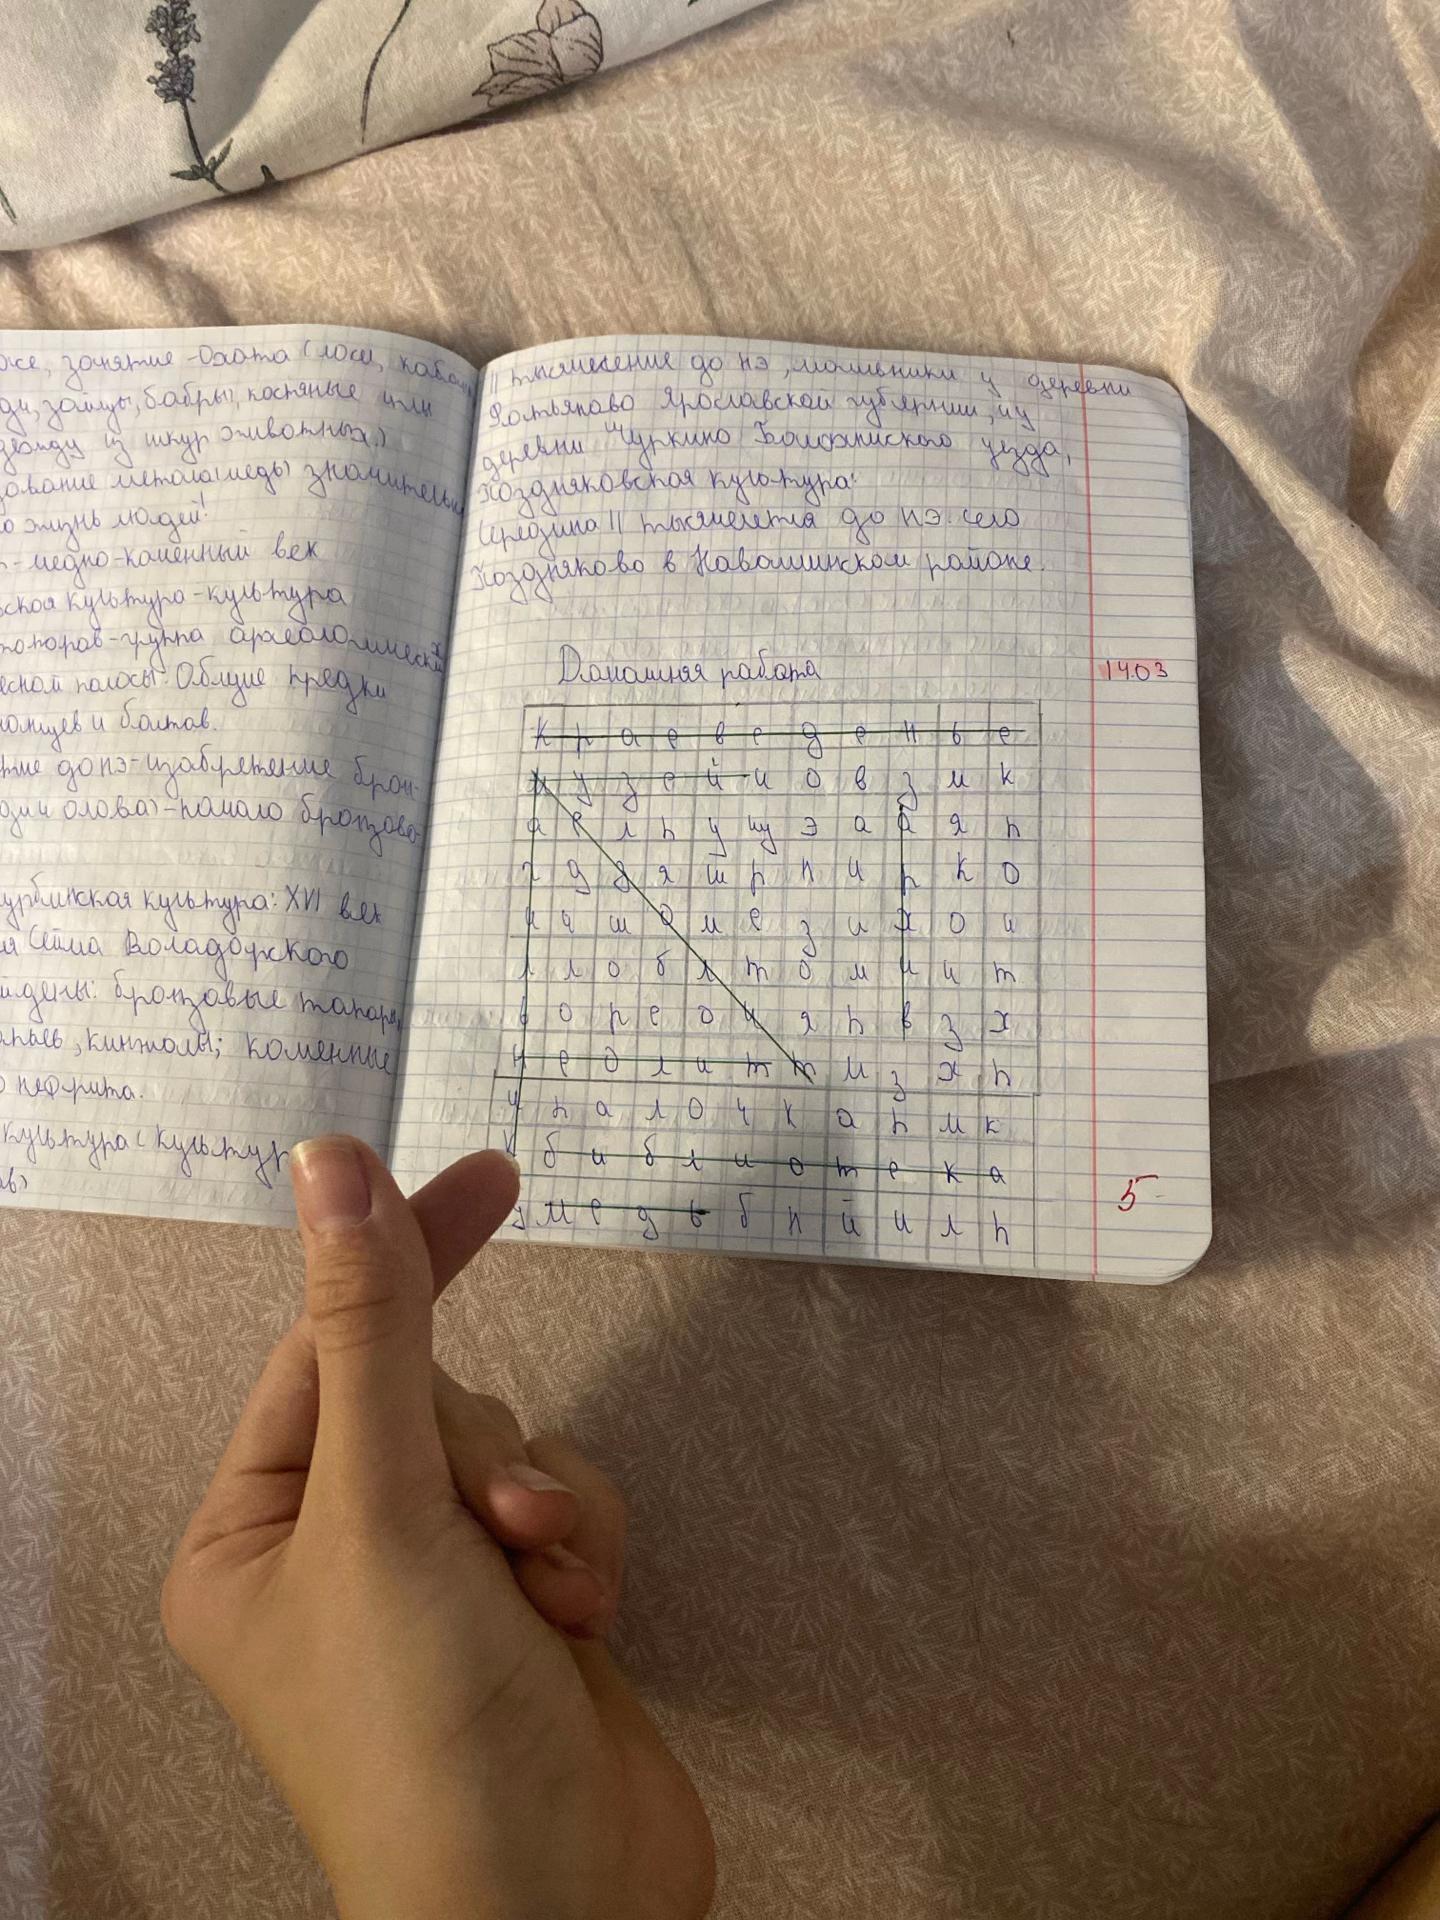 занятие - Охота (лоси,
зайцы, бобры, костяные или
из шкур животных.)
знамительно
жизнь людей!
- медно-каменный век
культура - культура
топоров - группа археологических
полосы. Общие предки
и балтов.
до нэ - изобретение
олова) - начало
культура: XVI век
Сейма Володарского
бронзовые
кинжалы; каменные
нефрита.
культура (культур
II тысячеление до нэ, могильники у деревни
Фатьяново Ярославской губернии, и у
деревни Чуркино Балахниского уезда,
Поздняковская культура:
Середина II тысячелетия до нэ. село
Поздняково в Навашинском районе.
Домашняя работа
14.03
к р а е в е д е н ь е
м у з е й и о в з м к
а е л п у щ э а а я п
г д д я ш р п и р к о
и ч ш а м е з и х о и
л л о б л т о м и и т
ь о р е о и я п в з х
н е о л и т т м з х п
и п а л о ч к а п м к
к б и б л и о т е к а
у м е д ь б п й и л п
5